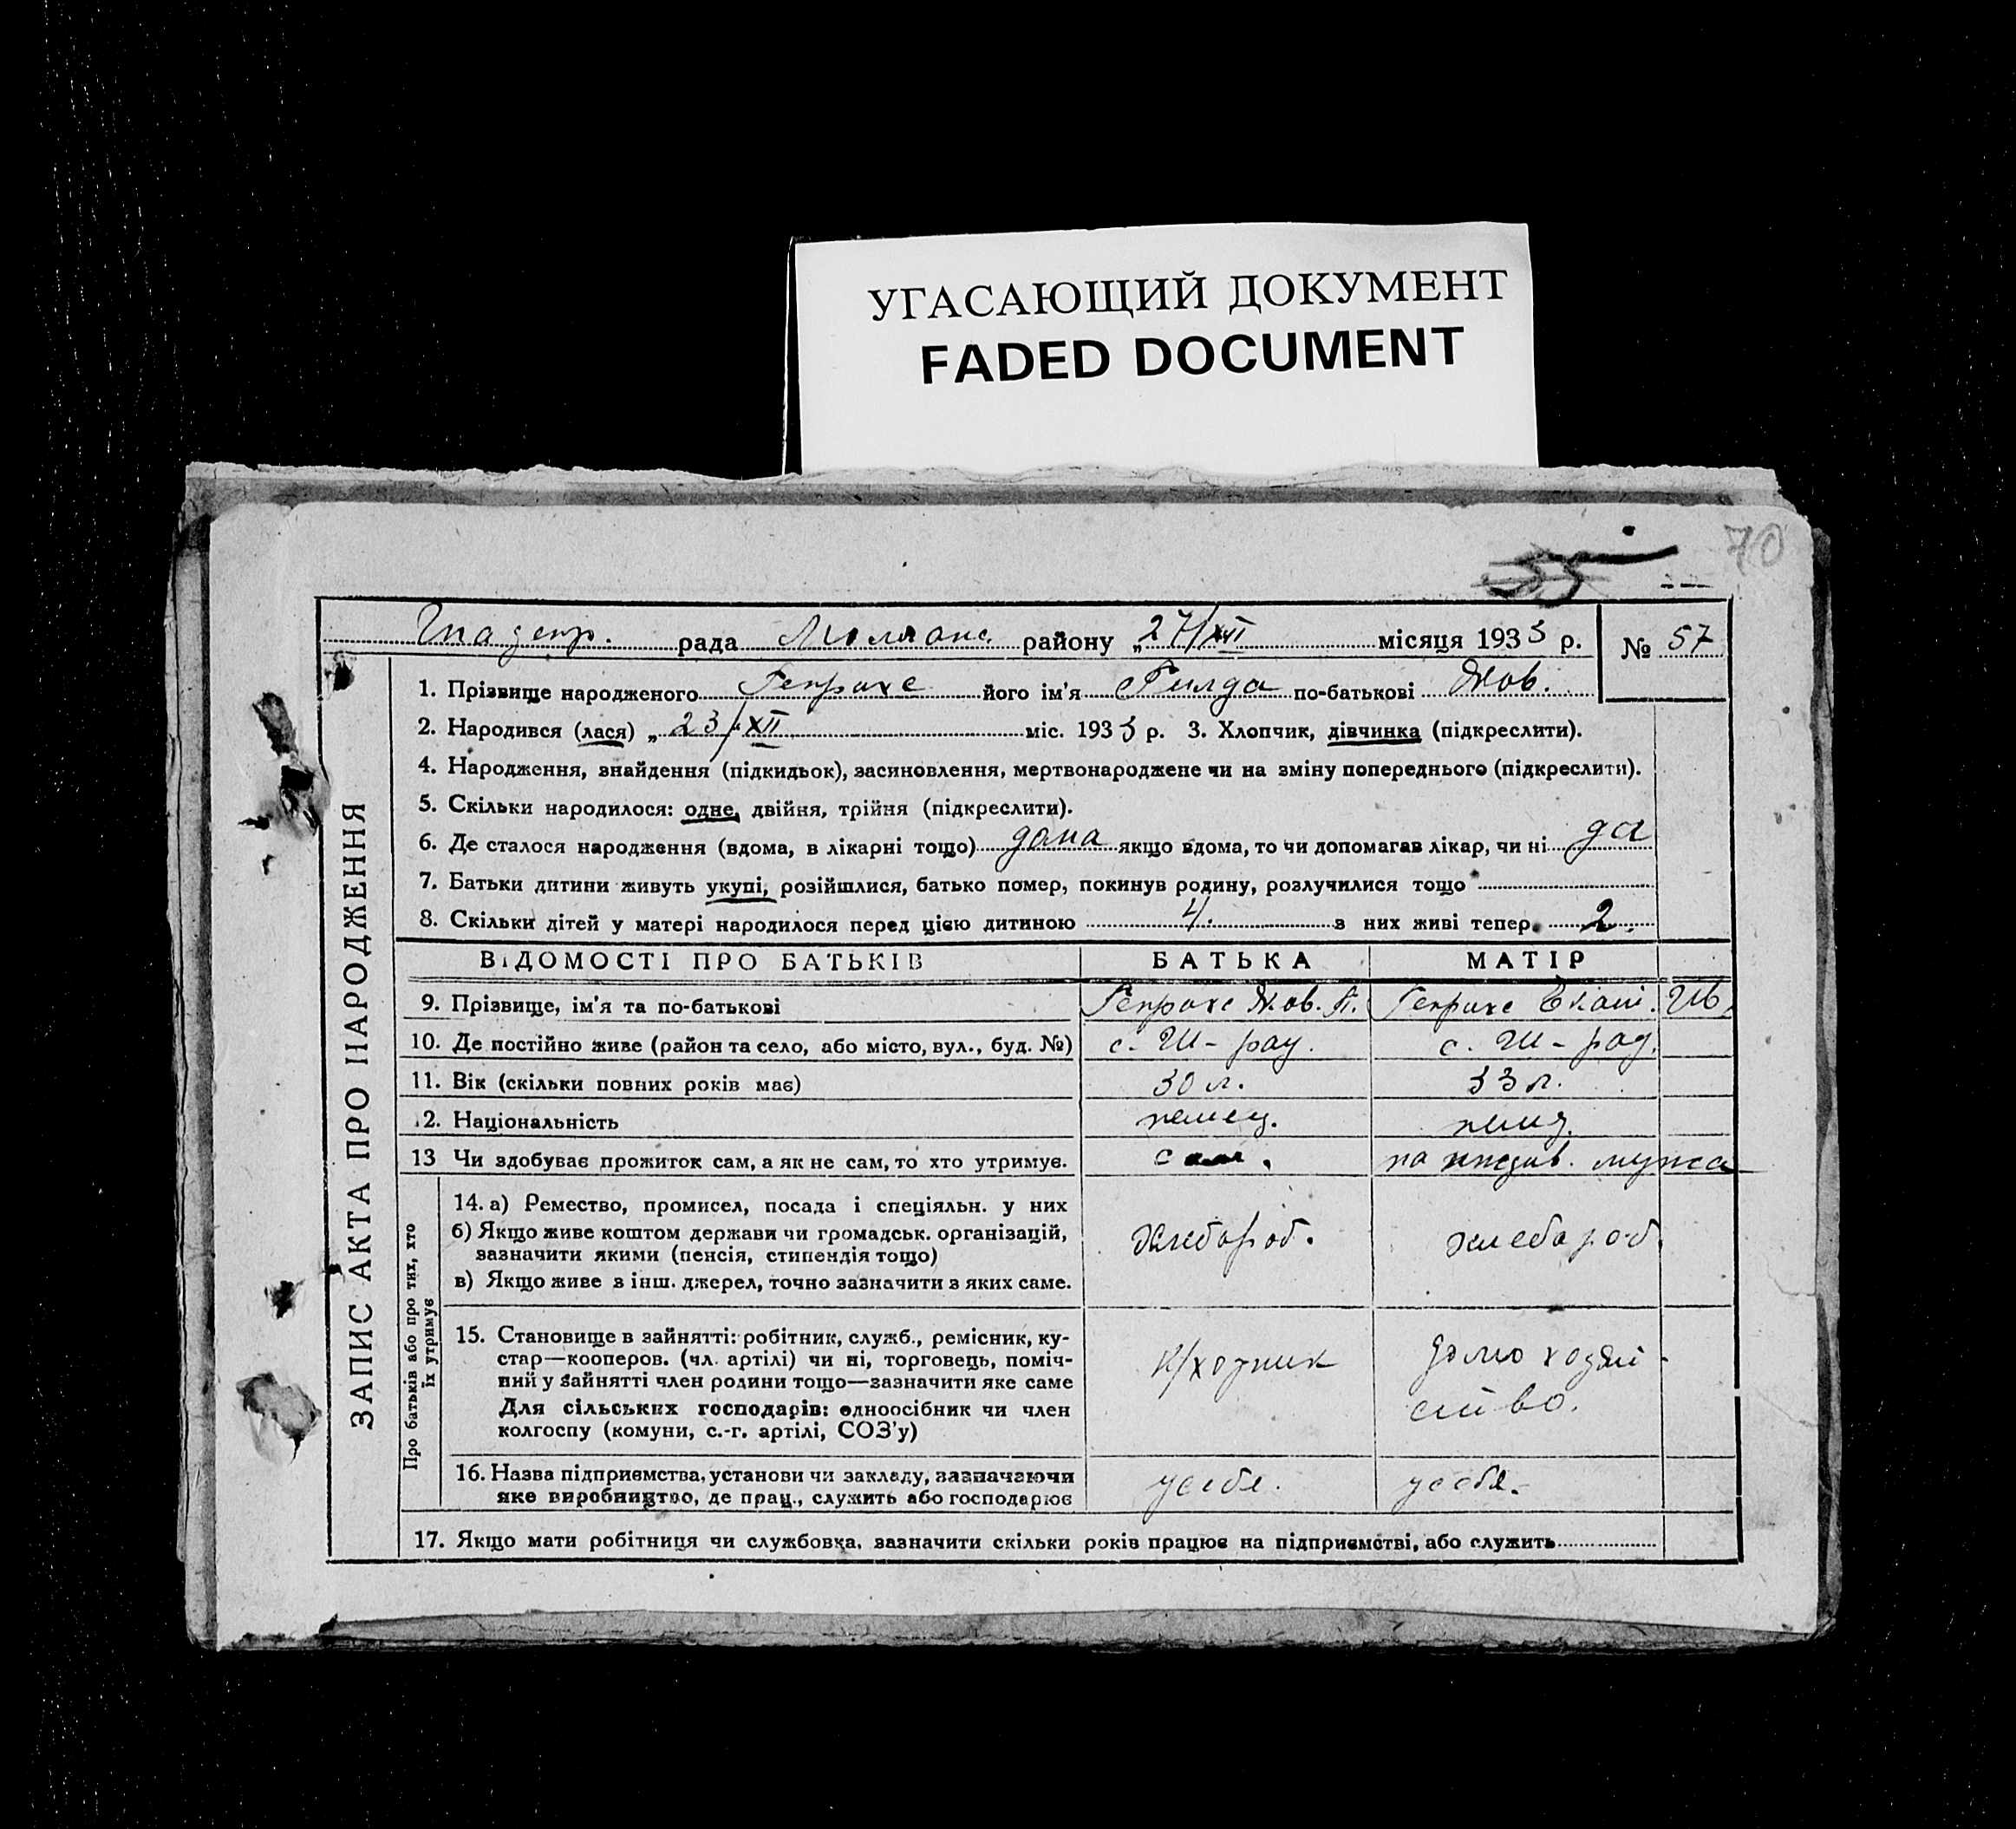 УГАСАЮЩИЙ ДОКУМЕНТ
FADED DOCUMENT
70
рада район у „27/XII місяця 1933 р. № 57
ЗАПИС АКТА ПРО НАРОДЖЕННЯ
1. Прізвище народженого його ім'я Гилда по-батькові Яков.
2. Народився (лася) „23/XII міс. 1933 р. 3. Хлопчик, дівчинка (підкреслити).
4. Народження, знайдення (підкидьок), засиновлення, мертвонароджене чи на зміну попереднього (підкреслити).
5. Скільки народилося: одне, двійня, трійня (підкреслити).
6. Де сталося народження (вдома, в лікарні тощо) дома якщо вдома, то чи допомагав лікар, чи ні да
7. Батьки дитини живуть укупі, розійшлися, батько помер, покинув родину, розлучилися тощо
8. Скільки дітей у матері народилося перед цією дитиною 4. з них живі тепер 2.
ВІДОМОСТІ ПРО БАТЬКІВ БАТЬКА МАТІР
9. Прізвище, ім'я та по-батькові
10. Де постійно живе (район та село, або місто, вул., буд. №) с. Ш-рад. с. Ш-рад.
11. Вік (скільки повних років має) 30 л. 33 л.
12. Національність немец. немц.
13 Чи здобуває прожиток сам, а як не сам, то хто утримує. сам. на иждив. мужа
Про батьків або про тих, хто їх утримує
14. а) Ремество, промисел, посада і спеціяльн. у них
б) Якщо живе коштом держави чи громадськ. організацій,
зазначити якими (пенсія, стипендія тощо)
в) Якщо живе з інш. джерел, точно зазначити з яких саме.
хлебороб. хлебороб.
15. Становище в зайнятті: робітник, служб., ремісник, ку-
стар—кооперов. (чл. артілі) чи ні, торговець, поміч-
ний у зайнятті член родини тощо—зазначити яке саме
Для сільських господарів: одноосібник чи член
колгоспу (комуни, с.-г. артілі, СОЗ'у)
к/хозник домохозяй-
ство.
16. Назва підприємства, установи чи закладу, зазначаючи
яке виробництво, де прац., служить або господарює
у себя. у себя.
17. Якщо мати робітниця чи службовка, зазначити скільки років працює на підприємстві, або служить